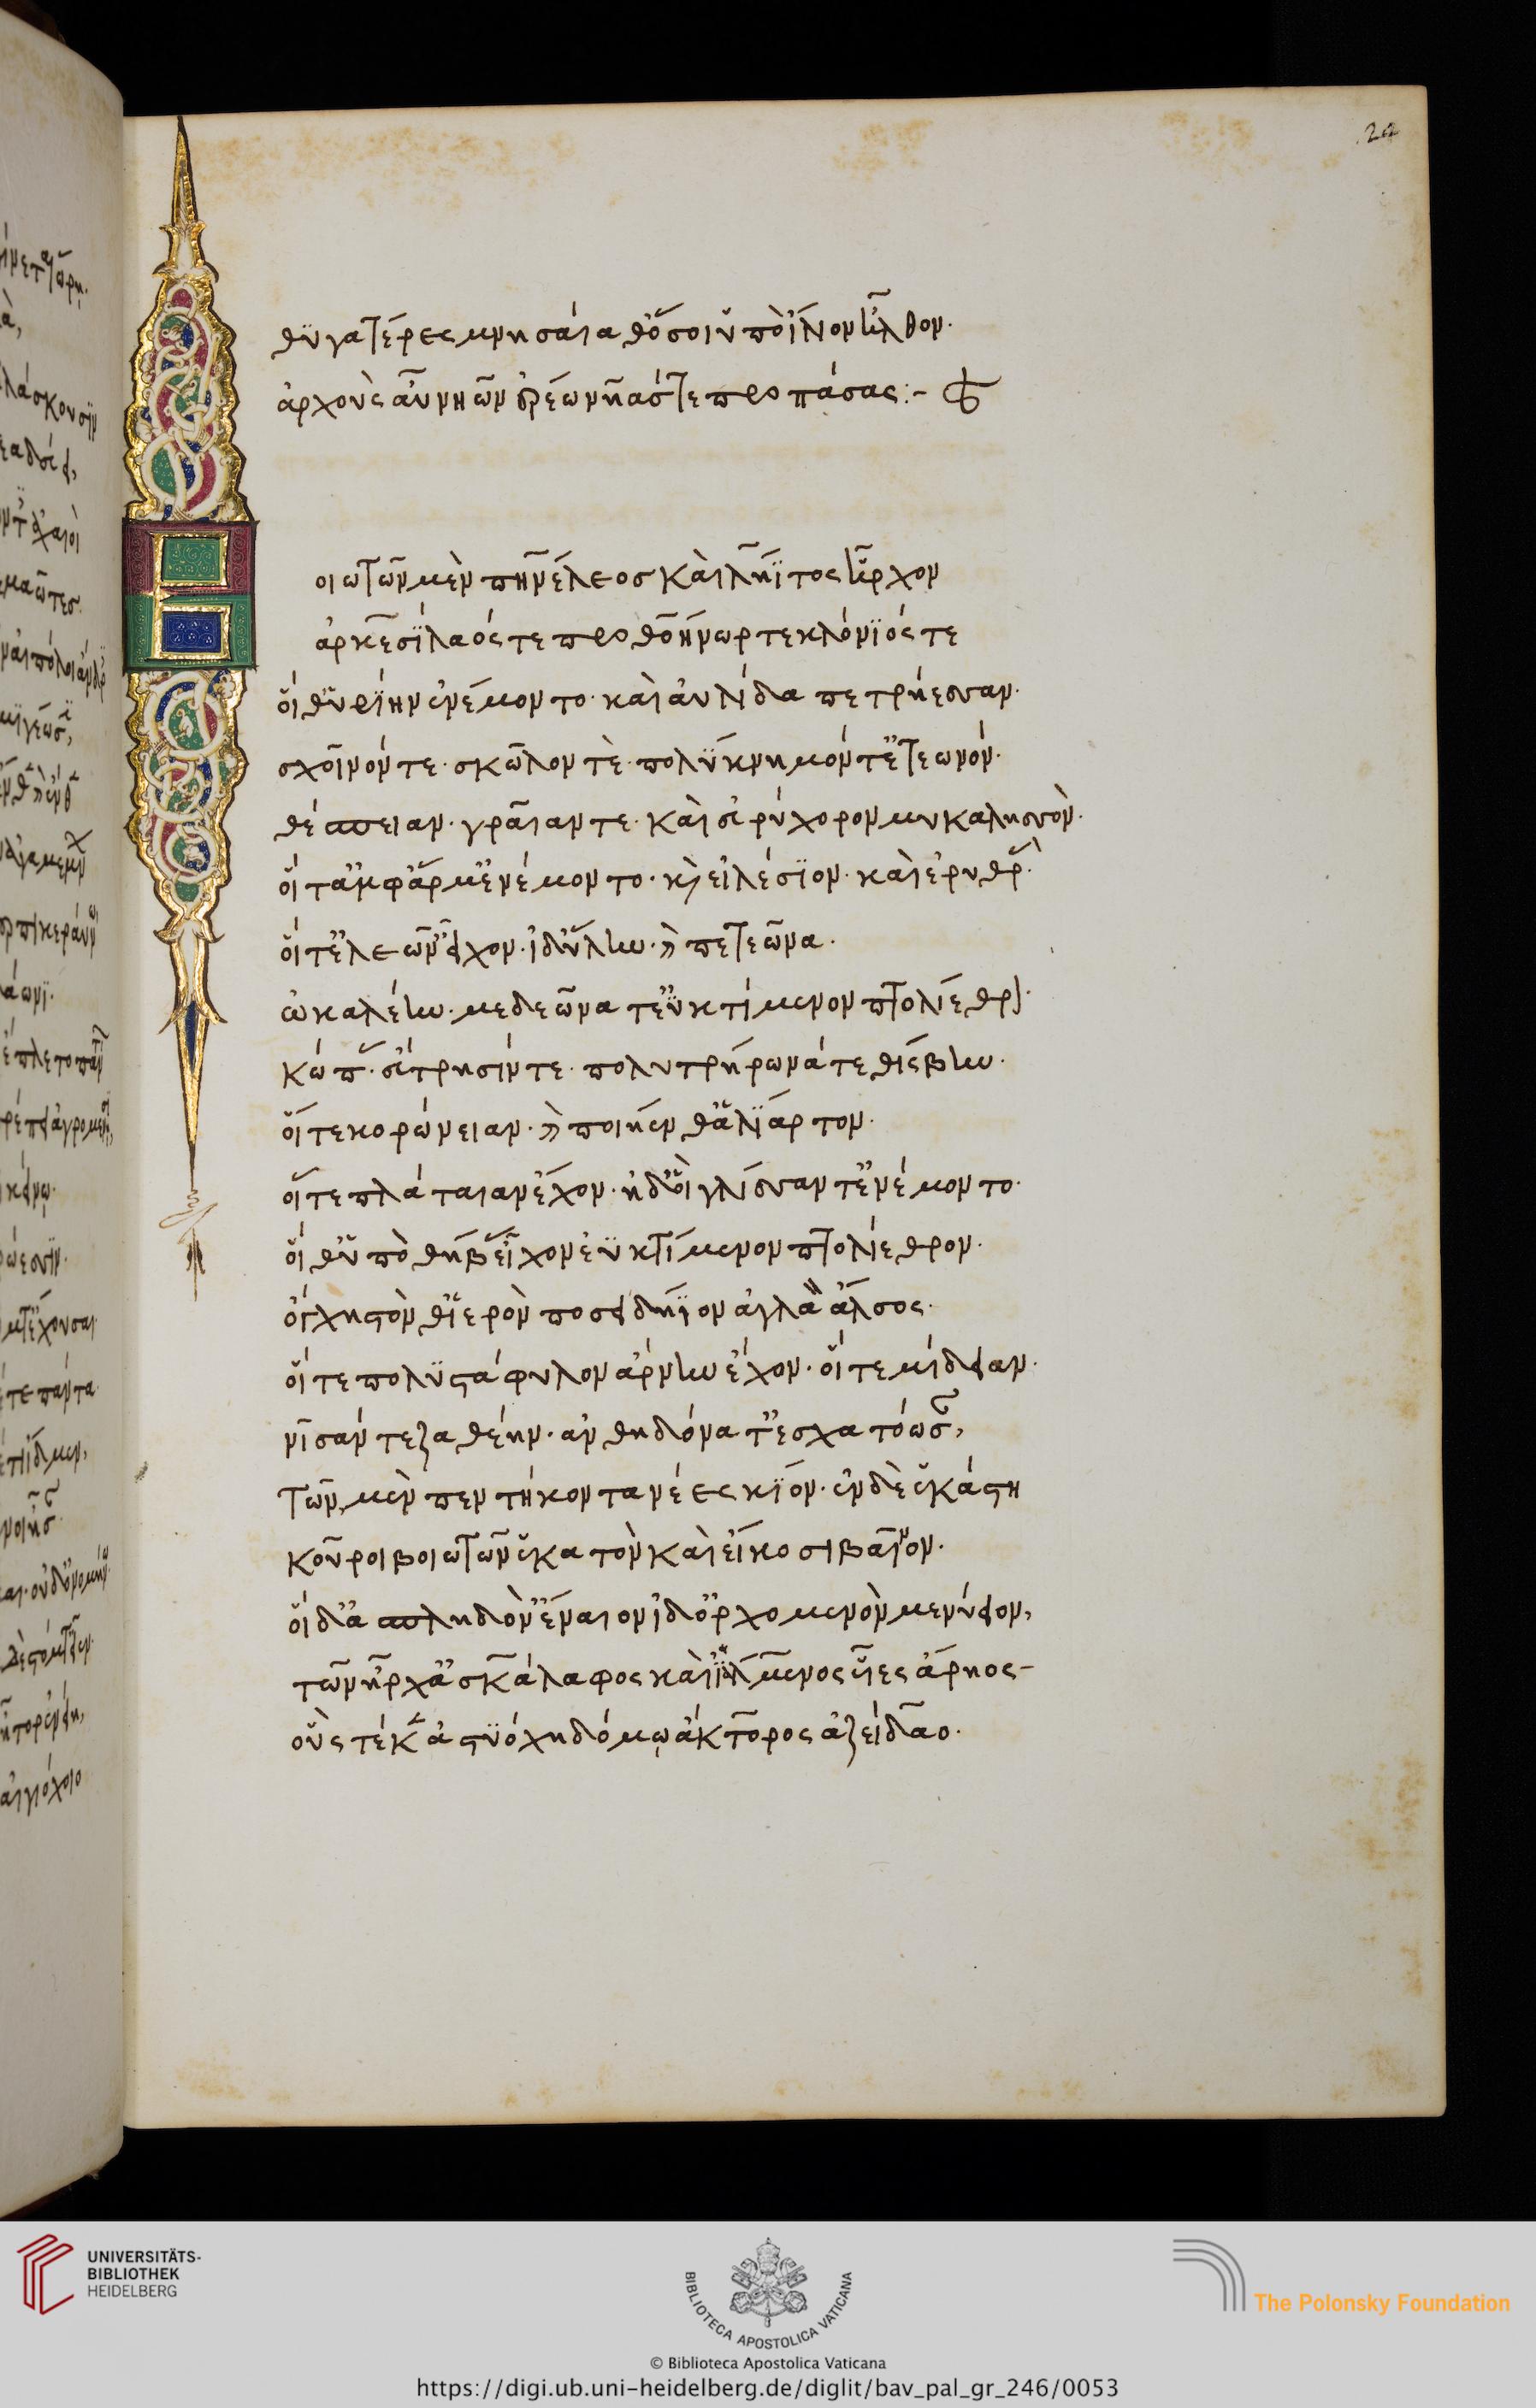 24
θυγατέρες μνησαίαθ' ὅσοι ὑπὸ ἴλιον ἦλθον.
ἀρχοὺς αὖ νηῶν ἐρέω νῆάς τε προπάσας:-
Βοιωτῶν μὲν πηνέλεος καὶ λήϊτος ἦρχον
ἀρκεσίλαός τε προθοήνωρ τε κλόνιός τε
οἵ θ' ὑρίην ἐνέμοντο· καὶ αὐλίδα πετρήεσσαν·
σχοῖνόν τε· σκῶλόν τε· πολύκνημόν τ' ἐτεωνόν·
θέσπειαν· γραῖάν τε· καὶ εὐρύχορον μυκαλησσόν·
οἵ τ' ἀμφ' ἅρμ' ἐνέμοντο· καὶ εἰλέσιον· καὶ ἐρυθράς·
οἵ τ' ἐλεῶν' εἶχον· ἰδ' ὕλην· καὶ πετεῶνα.
ὠκαλέην· μεδεῶνά τ' ἐϋκτίμενον πτολίεθρον·
κώπας· εὔτρησίν τε· πολυτρήρωνά τε θίσβην·
οἵ τε κορώνειαν· καὶ ποιήενθ' ἁλίαρτον·
οἵ τε πλάταιαν ἔχον· ἠδ' οἳ γλίσσαντ' ἐνέμοντο·
οἵ θ' ὑποθήβας εἶχον ἐϋκτίμενον πτολίεθρον·
ὀγχηστόν θ' ἱερὸν ποσειδήϊον ἀγλαὸν ἄλσος·
οἵ τε πολυστάφυλον ἄρνην ἔχον· οἵ τε μίδειαν·
νῖσάν τε ζαθέην· ἀνθηδόνα τ' ἐσχατόωσαν,
τῶν μὲν πεντήκοντα νέες κίον· ἐν δὲ ἑκάστη
κοῦροι βοιωτῶν ἑκατὸν καὶ εἴκοσι βαῖνον·
οἳ δ' ἀσπληδόν' ἔναιον ἰδ' ὀρχομενὸν μενύειον,
τῶν ἦρχ' ἀσκάλαφος καὶ ἰάλμενος υἷες ἄρηος-
οὓς τέκεν ἀστυόχη δόμῳ ἄκτορος ἀζείδαο·
UNIVERSITÄTS-
BIBLIOTHEK
HEIDELBERG
BIBLIOTECA APOSTOLICA VATICANA
The Polonsky Foundation
© Biblioteca Apostolica Vaticana
https://digi.ub.uni-heidelberg.de/diglit/bav_pal_gr_246/0053